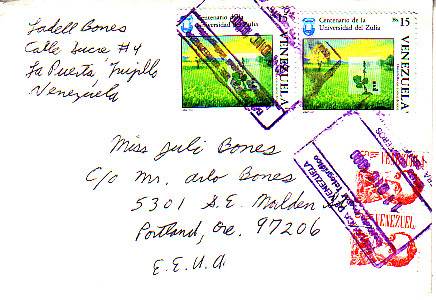 Ladell Bones
Calle Sucre #4
La Puerta, Trujillo
Venezuela
Centenario de la
Universidad del Zulia
VENEZUELA
Centenario de la
Universidad del Zulia
Bs 15
VENEZUELA
Miss Juli Bones
c/o Mr. Arlo Bones
5301 S.E. Malden
Portland, Ore. 97206
E.E.U.U.
VENEZUELA
VENEZUEL